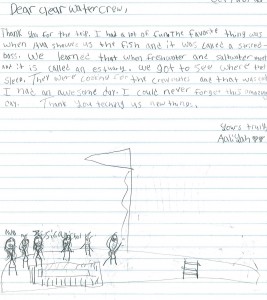 Dear clear water crew,
Thank you for the trip. I had a lot of fun. The favorite thing was
when Ana showed us the fish and it was called a striped
bass. We learned that when freshwater and saltwater
and it is called an estuary. We got to see where they
sleep. They were coming for the and that was
I had an awesome day. I could never forget this amazing
day. Thank you teaching us new things.
Yours truly
Aaliyah